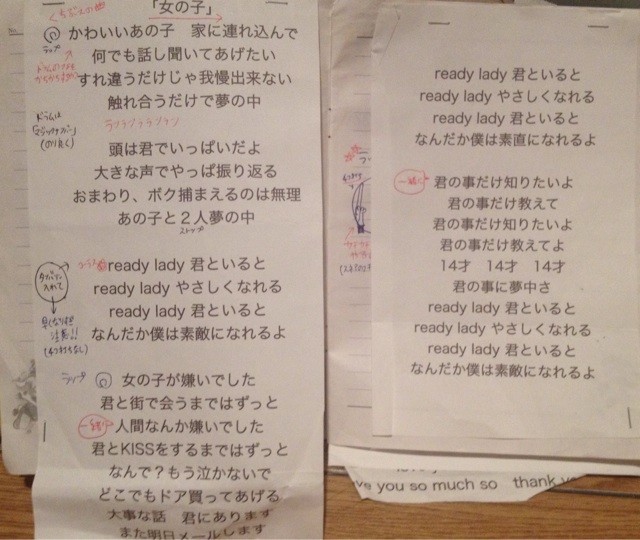 「女の子」
かわいいあの子　家に連れ込んで
何でも話し聞いてあげたい
すれ違うだけじゃ我慢出来ない
触れ合うだけで夢の中
頭は君でいっぱいだよ
大きな声でやっぱ振り返る
おまわり、ボク捕まえるのは無理
あの子と２人夢の中
ready lady 君といると
ready lady やさしくなれる
ready lady 君といると
なんだか僕は素敵になれるよ
女の子が嫌いでした
君と街で会うまではずっと
一緒に
人間なんか嫌いでした
君とKISSをするまではずっと
なんで？もう泣かないで
どこでもドア買ってあげる
大事な話　君にあります
また明日メールします
ready lady 君といると
ready lady やさしくなれる
ready lady 君といると
なんだか僕は素直になれるよ
一緒に
君の事だけ知りたいよ
君の事だけ教えて
君の事だけ知りたいよ
君の事だけ教えてよ
14才　14才　14才
君の事に夢中さ
ready lady 君といると
ready lady やさしくなれる
ready lady 君といると
なんだか僕は素敵になれるよ
you so much so　thank